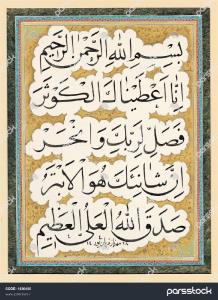 بسم الله الرحمن الرحيم
انا اعطيناك الكوثر
فصل لربك وانحر
ان شانئك هو الابتر
صدق الله العلي العظيم
parsstock